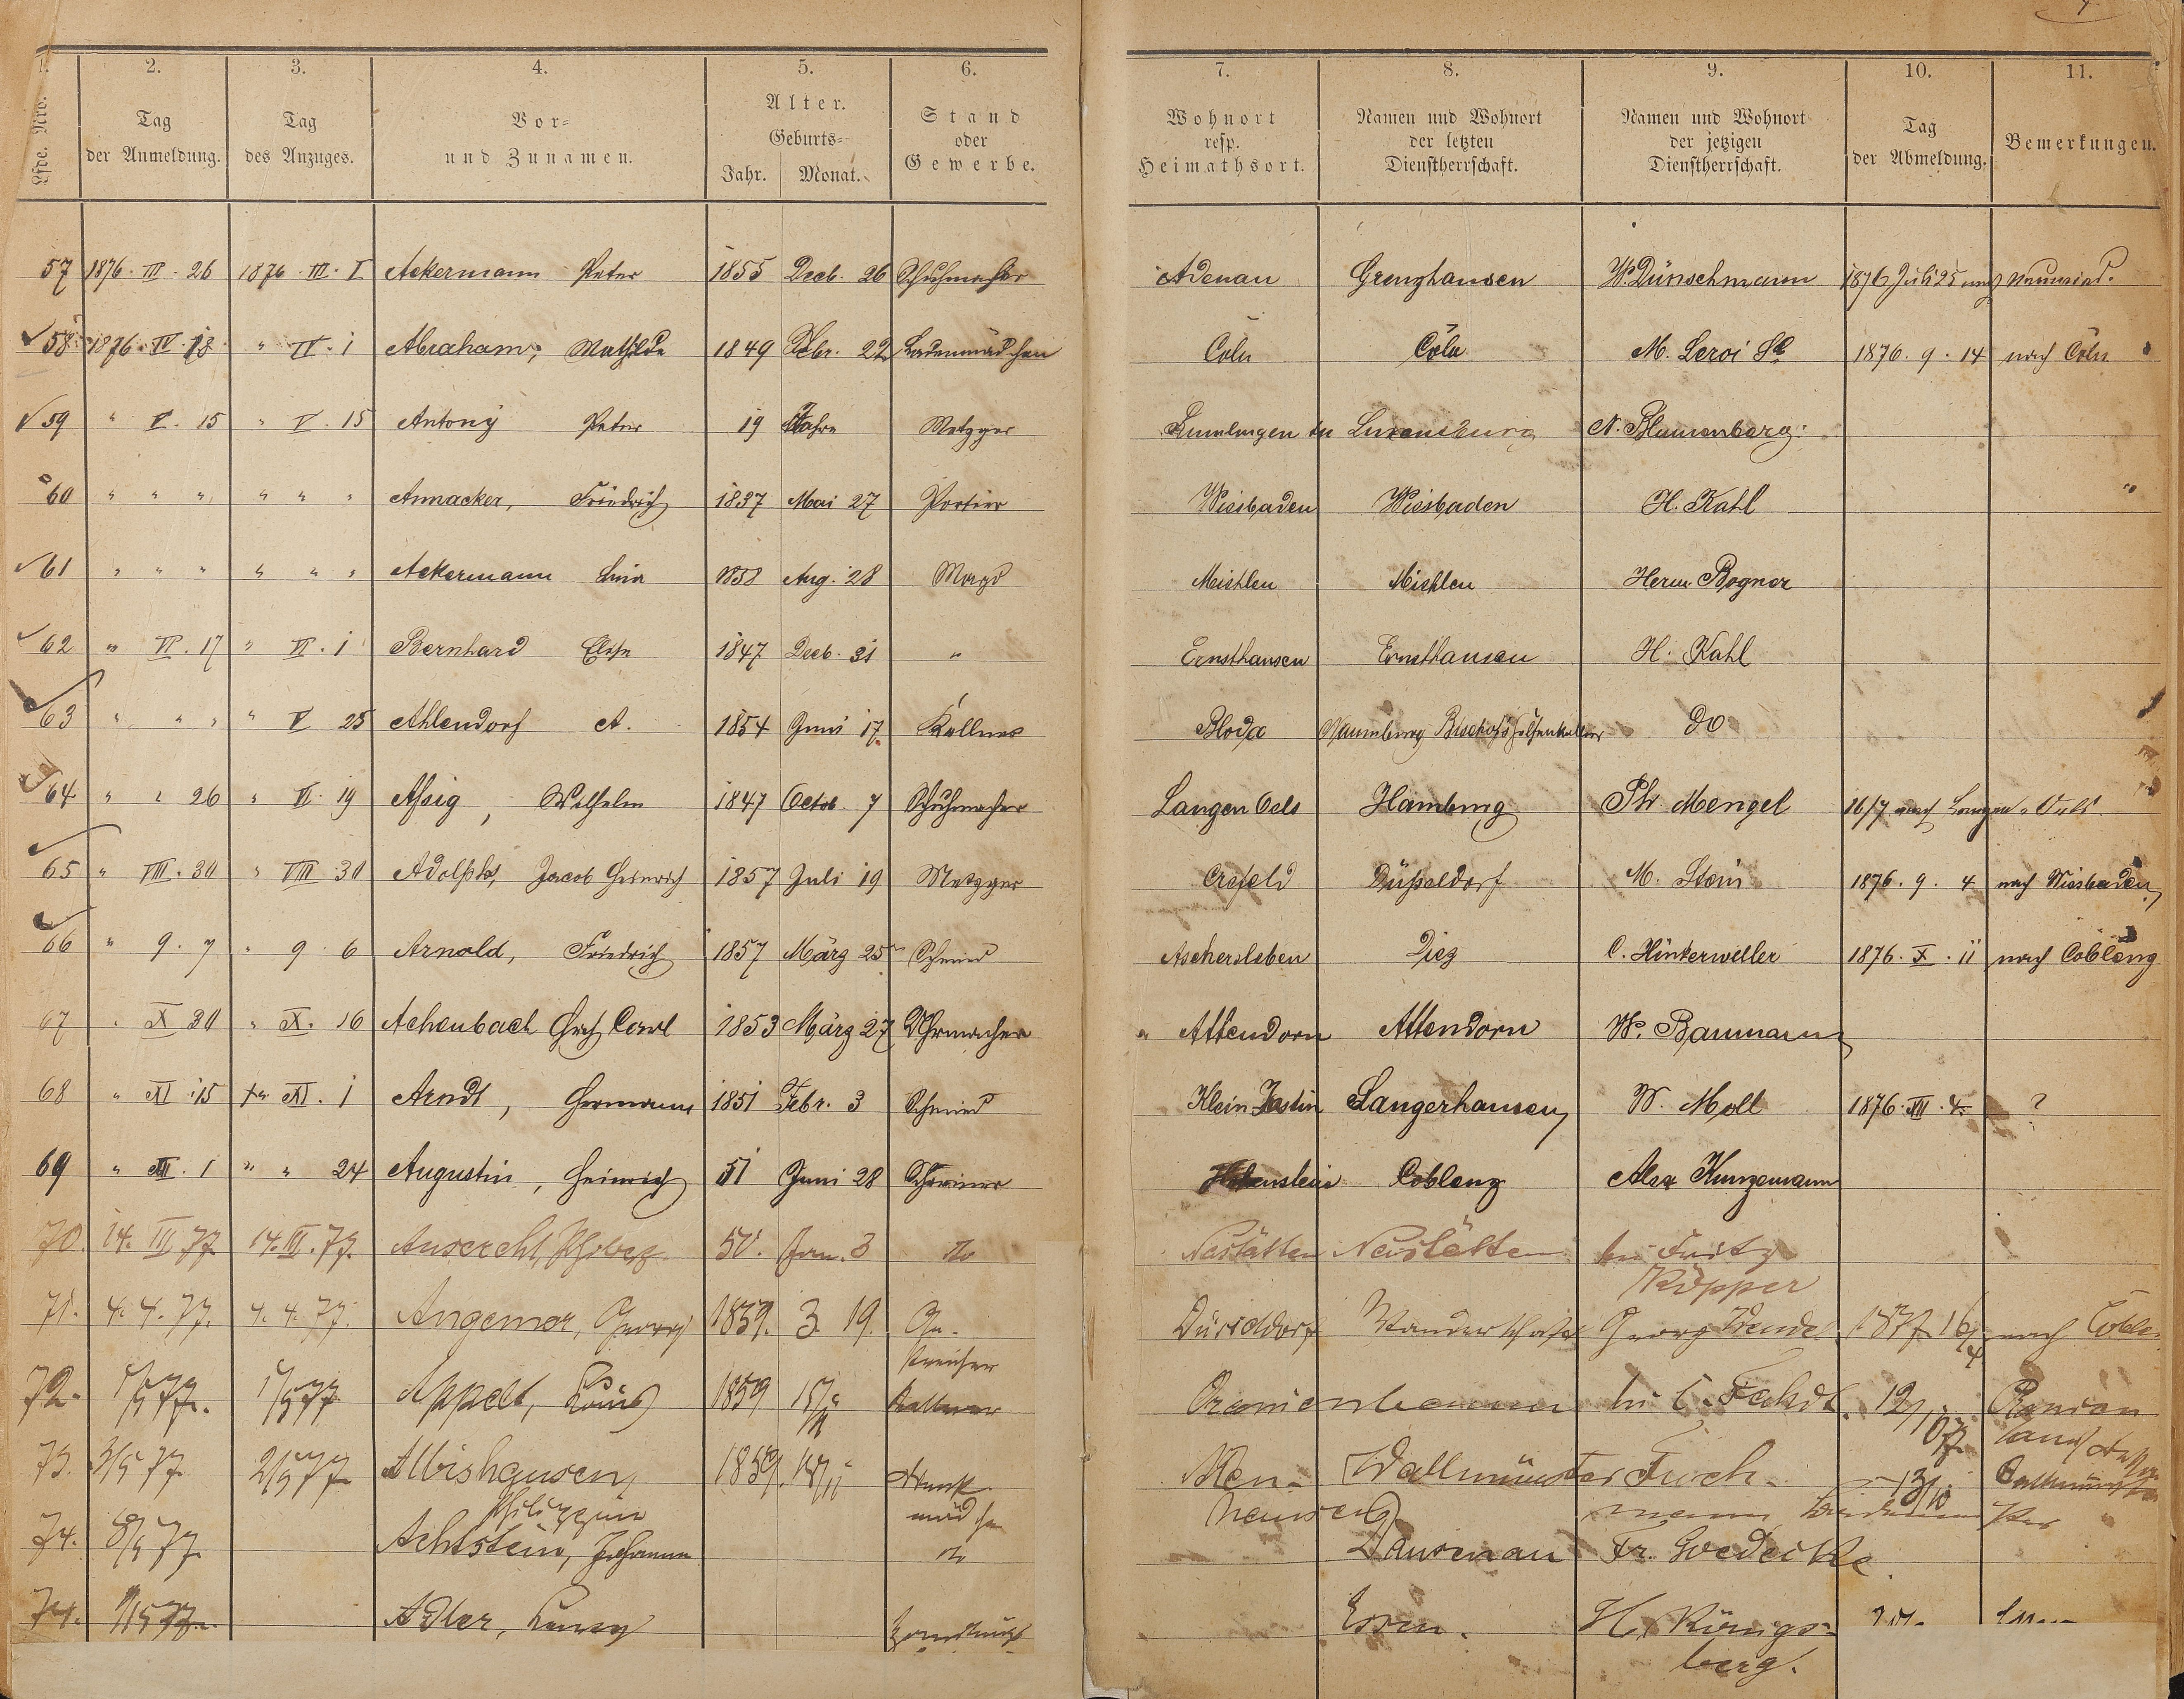 1. 2. 3. 4. 5. 6. 7. 8. 9. 10. 11.
Lfde. Nro. Tag der Anmeldung. Tag des Anzuges. Vor- und Zunamen. Alter. Geburts- Jahr. Monat. Stand oder Gewerbe. Wohnort resp. Heimathsort. Namen und Wohnort der letzten Dienstherrschaft. Namen und Wohnort der jetzigen Dienstherrschaft. Tag der Abmeldung. Bemerkungen.
57 1876. III. 26 1876. III. I Ackermann Peter 1855 Decb. 26 Schuhmacher Adenau Grenzhausen W. Dünschmann 1876 Juli 25 nach Neuwied.
58 1876. IV. 18 " IV. 1 Abraham, Mathilde 1849 Febr. 22 Ladenmädchen Cöln Cöln M. Leroi 1876. 9. 14 nach Cöln
59 " V. 15 " V. 15 Antony Peter 19 Jahre Metzger Luxemburg N. Blumenberg.
60 " " " " " " Annacker, Friedrich 1837 Mai 27 Portier Wiesbaden Wiesbaden H. Kahl
61 " " " " " " Ackermann Lina 1858 Aug. 28 Magd Miehlen Miehlen Herm. Bogner
62 " VI. 17 " VI. 1 Bernhard Elise 1847 Decb. 31 " Ernsthausen Ernsthausen H. Kahl
63 " " " " V 25 Ahlendorf A. 1854 Juni 17 Kellner Naumburg do
64 " " 26 " VI. 19 Assig, Wilhelm 1847 Octob. 7 Schuhmacher Langen Oels Hamburg Ph. Mengel 16/7 nach Langen-Oels
65 " VIII. 30 " VIII 30 Adolphs, Jacob Heinrich 1857 Juli 19 Metzger Crefeld Düsseldorf M. Stein 1876. 9. 4 nach Wiesbaden
66 " 9. 7 " 9. 6 Arnold, Friedrich 1857 März 25 Schmied Aschersleben Diez C. Hinterweller 1876. X. 11 nach Coblenz
67 " X 30 " X. 16 Achenbach Carl 1853 März 27 Uhrmacher " Attendorn Attendorn W. Baumann
68 " XI 15 " XI. 1 Arndt, Hermann 1851 Febr. 3 Schmied Klein Jestin Sangerhausen W. Moll 1876. XII. 4 ?
69 " XII. 1 " " 24 Augustin, Heinrich 51 Juni 28 Schreiner Hohenstein Coblenz Alex Kunzemann
70. 14. III 77 14. III. 77. 50. Jan. 3 do Nastätten Nastätten bei Fritz
Küpper
71. 4. 4. 77. 4. 4. 77. Angemer, Georg 1859. 3. 19. Düsseldorf Wanderschaft Georg 1877 16/4 nach
72. 1/5 77. 1/5 77 Appelt, Louis 1859 Kellner bei C.
73. 3/5 77 2/5 77 Albishausen, 1859. Wallmünster
Philippin
74. 8/5 77 Achtstein, Johanna do Dausenau Fr. Goedecke.
74. 9/5 77. Adler, Essen. H. Königs-
berg.